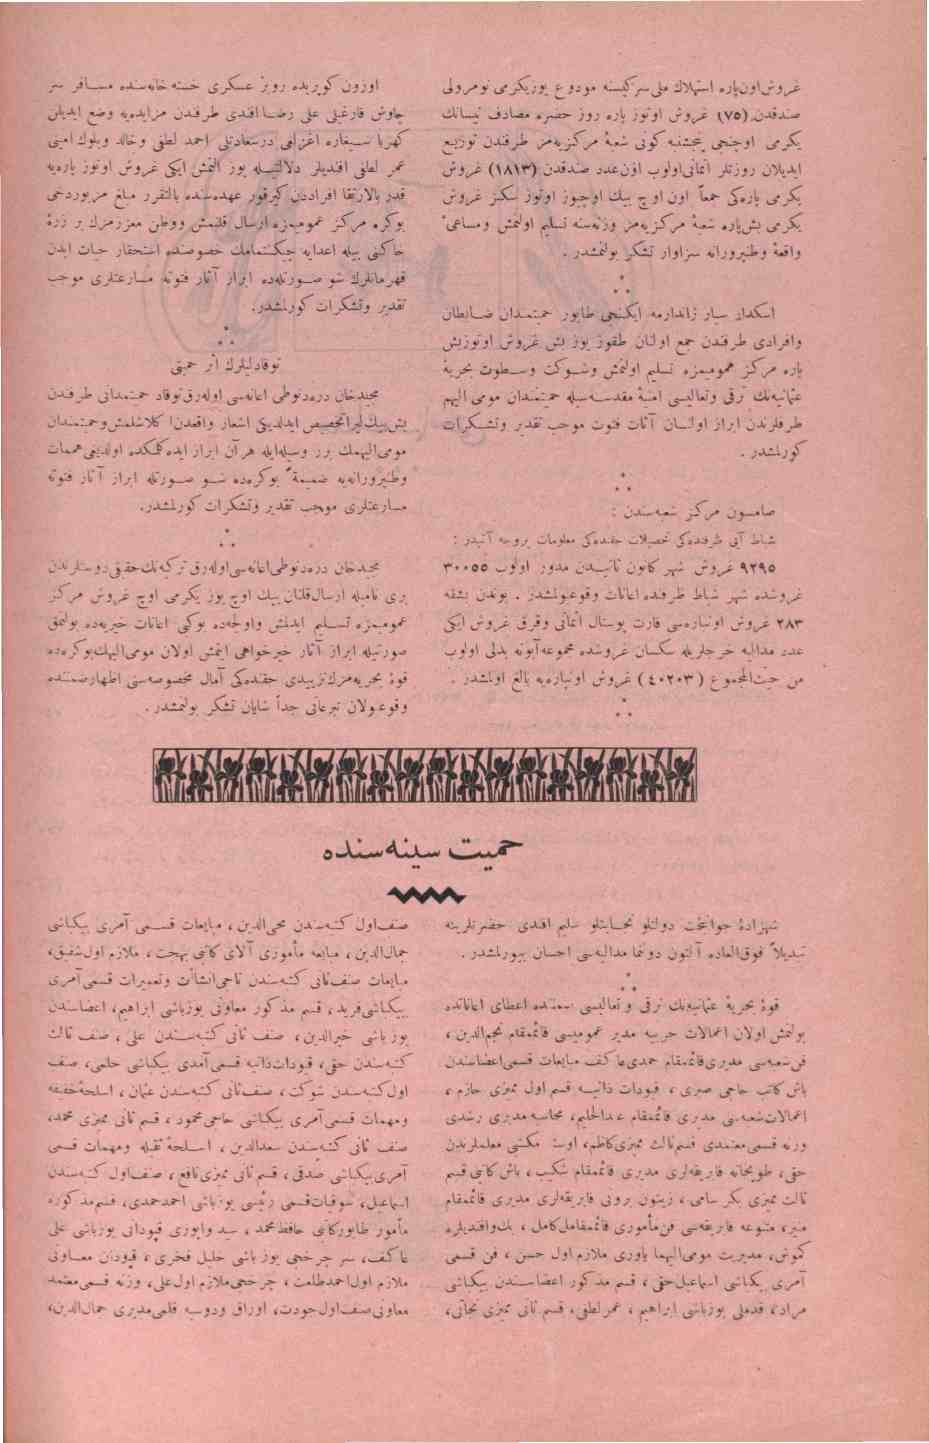 غروش اون پاره استهلاك ملی سركیسنه مودوع یوزیكرمی نومرولی
صندقدن (٧٥) غروش اوتوز پاره روز حضره مصادف نیسانك
یكرمی اوچنجی پنجشنبه كونی شعبهٔ مركزیه‌مز طرفندن توزیع
ایدیلان روزتلر اثمانی اولوب اون عدد صندقدن (١٨١٣) غروش
یكرمی پاره‌كی جمعاً اون اوچ بیك اوچیوز اوتوز سكز غروش
یكرمی بش پاره شعبهٔ مركزیه‌مز وزنه‌سنه تسلیم اولنمش ومساعیٔ
واقعهٔ وطنپرورانه سزاوار تشكر بولنمشدر .
اسكدار سیار ژاندارمه ایكنجی طابور حمیتمندان ضابطان
وافرادی طرفندن جمع اولنان طقوز یوز بش غروش اوتوزبش
پاره مركز عمومیمزه تسلیم اولنمش وشوكت وسطوت بحریهٔ
عثمانیه‌نك ترقی وتعالیسی امنیهٔ مقدسه‌سیله حمیتمندان مومی الیهم
طرفلرندن ابراز اولنان آثات فتوت موجب تقدیر وتشكرات
كورلمشدر .
صامسون مركز شعبه‌سندن :
شباط آیی ظرفنده‌كی تحصیلات حقنده‌كی معلومات بروجه آتیدر :
٩٢٩٥ غروش شهر كانون ثانیدن مدور اولوب ٣٠٠٥٥
غروشده شهر شباط ظرفنده اعانات وقوعبولمشدر . بوندن بشقه
٢٨٣ غروش اونپاره‌سی قارت پوستال اثمانی وقرق غروش ایكی
عدد مدالیه خرجلریله سكسان غروشده مجموعه آبونه بدلی اولوب
من حیث‌المجموع (٤٠٢٠٣) غروش اونپاره‌یه بالغ اولمشدر .
اوزون كوپریده روبز عسكری خسته خانه‌سنده مسافر سر
چاوش قارغیلی علی رضا افندی طرفندن مزایده‌یه وضع ایدیلن
كهربا سیغاره اغزلغی درسعادتلی احمد لطفی وخالد وبلوك امینی
عمر لطفی افندیلر دلالتیله یوز التمش ایكی غروش اوتوز پاره‌یه
قدر بالارتقا افراددن كیرفور عهده‌سنده بالتقرر مبلغ مزبوردخی
بوكره مركز عمومیمزه ارسال قلنمش ووطن معززمزك بر ذرهٔ
خاكنی بیله اعدایه چیكنتمامك خصوصنده استحقار حیات ایدن
قهرمانلرك شو صورتله‌ده ابراز آثار فتوته مسارعتلری موجب
تقدیر وتشكرات كورلمشدر.
توقادلیلرك اثر حمیتی
مجیدخان دره‌دنوطی اعانه‌سی اوله‌رق توقاد حمیتمدانی طرفندن
بش‌بیك لیرا تخصیص ایدلدیكی اشعار واقعدن اكلاشلمش وحمیتمندان
مومی‌الیهمك برر وسیله‌ایله هرآن ابراز ایده كلمكده اولدیغی همات
وطنپرورانه‌یه ضمیمةً بوكره‌ده شو صورتله ابراز آثار فتوته
مسارعتلری موجب تقدیر وتشكرات كورلمشدر.
مجیدخان دره‌دنوطی اعانه‌سی اوله‌رق تركیه‌نك حقیقی دوستلرندن
بری نامیله ارسال قلنان بیك اوچ یوز یكرمی اوچ غروش مركز
عمومیمزه تسلیم ایدلمش واولجه‌ده بوكبی اعانات خیریه‌ده بولنمق
صورتیله ابراز آثار خیرخواهی ایتمش اولان مومی‌الیهك بوكره‌ده
قوهٔ بحریه‌مزك تزییدی حقنده‌كی آمال مخصوصه‌سنی اظهار ضمننده
وقوعبولان تبرعاتی جداً شایان تشكر بولنمشدر .
حمیت سینه‌سنده
شهزادهٔ جوانبخت دولتلو نجابتلو سلیم افندی حضرتلرینه
تبدیلاً فوق‌العاده آلتون دونما مدالیه‌سی احسان بیورلمشدر .
قوهٔ بحریهٔ عثمانیه‌نك ترقی و تعالیسی ضمننده اعطای اعاناتده
بولنمش اولان اعمالات حربیه مدیر عمومیسی قائمقام نجم‌الدین ،
فن شعبه‌سی مدیری قائمقام حمدی عاكف مبایعات قسمی اعضاسندن
باش كاتب حاجی صبری ، قیودات ذاتیه قسم اول ممیزی حازم ،
اعمالات شعبه‌سی مدیری قائمقام عبدالحلیم، محاسبه مدیری رشدی
وزنه قسمی معتمدی قسم ثالث ممیزی كاظم، اوسته مكتبی معلملرندن
حقی، طوپخانه فابریقه‌لری مدیری قائمقام شكیب ، باش كاتبی قسم
ثالث ممیزی بكر سامی ، زیتون برونی فابریقه‌لری مدیری قائمقام
منیر، متنوعه فابریقه‌سی فن مأموری قائمقام كامل ، بك وافندیلره
كموش، مدیریت مومی‌الیها یاوری ملازم اول حسن ، فن قسمی
آمری بیكباشی اسماعیل حقی ، قسم مذكور اعضاسندن بیكباشی
مراد، قدملی یوزباشی ابراهیم ، عمر لطفی، قسم ثانی ممیزی نجاتی،
صنف اول كتبه‌سندن محی‌الدین ، مبایعات قسمی آمری بیكباشی
جمال‌الدین ، مبایعه مأموری آلای كاتبی بهجت ، ملازم اول شفیق،
مبایعات صنف ثانی كتبه‌سندن ناجی انشاآت وتعمیرات قسمی آمری
بیكباشی فرید، قسم مذكور معاونی یوزباشی ابراهیم، اعضاسندن
یوزباشی خیرالدین، صنف ثانی كتبه‌سندن علی ، صنف ثالث
كتبه‌سندن حقی، قیودات ذاتیه قسمی آمری بیكباشی حلمی، صنف
اول كتبه‌سندن شوكت ، صنف ثانی كتبه‌سندن عثمان ، اسلحهٔ خفیفه
ومهمات قسمی آمری بیكباشی حاجی محمود ، قسم ثانی ممیزی محمد،
صنف ثانی كتبه‌سندن سعدالدین ، اسلحهٔ ثقیله ومهمات قسمی
آمری بیكباشی صدقی ، قسم ثانی ممیزی نافع ، صنف اول كتبه‌سندن
اسماعیل، سوقیات قسمی رئیسی یوزباشی احمد حمدی، قسم مذكوره
مأمور طابور كاتبی حافظ محمد ، سد واپوری قپودانی یوزباشی علی
عاكف، سر چرخجی یوز باشی خلیل فخری ، قپودان معاونی
ملازم اول احمد طلعت ، چرخجی ملازم اول علی، وزنه قسمی معتمد
معاونی صنف اول جودت، اوراق ودوسیه قلمی مدیری جمال‌الدین،